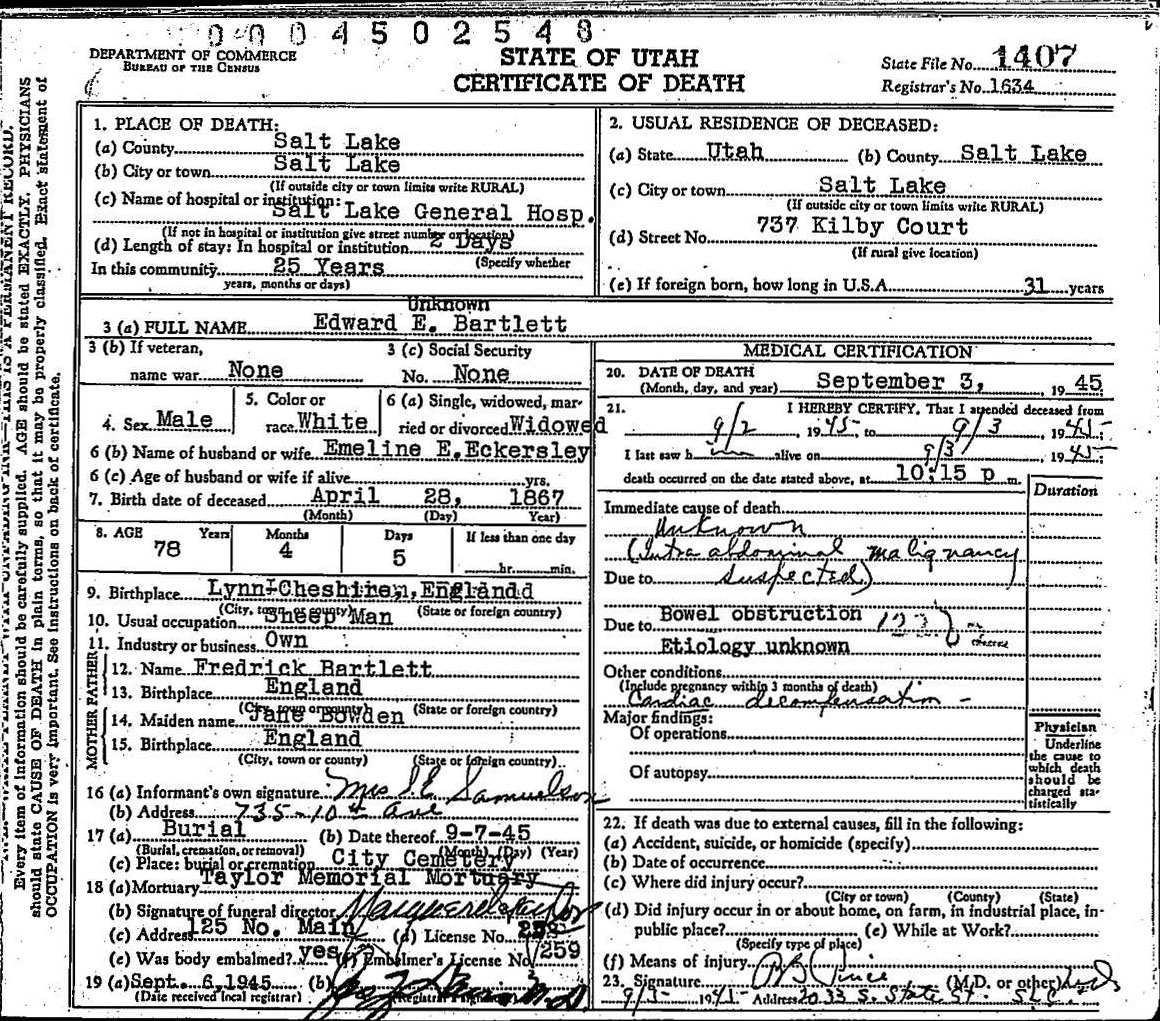 0004502548
DEPARTMENT OF COMMERCE
BUREAU OF THE CENSUS
STATE OF UTAH
CERTIFICATE OF DEATH
State File No. 1407
Registrar's No. 1634
Every item of information should be carefully supplied. AGE should be stated EXACTLY. PHYSICIANS
should state CAUSE OF DEATH in plain terms, so that it may be properly classified. Exact statement of
OCCUPATION is very important. See instructions on back of certificate.
1. PLACE OF DEATH:
(a) County Salt Lake
(b) City or town Salt Lake
(If outside city or town limits write RURAL)
(c) Name of hospital or institution:
Salt Lake General Hosp.
(If not in hospital or institution give street number or location)
(d) Length of stay: In hospital or institution 2 Days
(Specify whether
In this community 25 Years
years, months or days)
2. USUAL RESIDENCE OF DECEASED:
(a) State Utah (b) County Salt Lake
(c) City or town Salt Lake
(If outside city or town limits write RURAL)
(d) Street No. 737 Kilby Court
(If rural give location)
(e) If foreign born, how long in U.S.A. 31 years
Unknown
3 (a) FULL NAME Edward E. Bartlett
3 (b) If veteran,
name war None
3 (c) Social Security
No. None
4. Sex Male
5. Color or
race White
6 (a) Single, widowed, mar-
ried or divorced Widowed
6 (b) Name of husband or wife Emeline E.Eckersley
6 (c) Age of husband or wife if alive yrs.
7. Birth date of deceased April 28, 1867
(Month) (Day) Year)
8. AGE Years Months Days If less than one day
78 4 5 hr. min.
9. Birthplace Lynn-Cheshire, England
(City, town or county) (State or foreign country)
10. Usual occupation Sheep Man
11. Industry or business Own
FATHER
12. Name Fredrick Bartlett
13. Birthplace England
(City, town or county) (State or foreign country)
MOTHER
14. Maiden name Jane Bowden
15. Birthplace England
(City, town or county) (State or foreign country)
16 (a) Informant's own signature Mrs S.E Samuelson
(b) Address 735-10th Ave
17 (a) Burial (b) Date thereof 9-7-45
(Burial, cremation, or removal) (Month) (Day) (Year)
(c) Place: burial or cremation City Cemetery
18 (a) Mortuary Taylor Memorial Mortuary
(b) Signature of funeral director
(c) Address 125 No. Main (d) License No.
(e) Was body embalmed? yes (f) Embalmer's License No. 259
19 (a) Sept. 6,1945 (b)
(Date received local registrar)
MEDICAL CERTIFICATION
20. DATE OF DEATH
(Month, day, and year) September 3, 19 45
21. I HEREBY CERTIFY, That I attended deceased from
9/2, 1945, to 9/3 1945;
I last saw him alive on 9/3 1945
death occurred on the date stated above, at 10:15 p m.
Duration
Immediate cause of death
Unknown
(Intra abdominal malignancy
Due to suspected)
Due to Bowel obstruction
Etiology unknown
Other conditions
(Include pregnancy within 3 months of death)
Cardiac decompensation -
Major findings:
Of operations
Of autopsy
Physician
Underline
the cause to
which death
should be
charged sta-
tistically
22. If death was due to external causes, fill in the following:
(a) Accident, suicide, or homicide (specify)
(b) Date of occurrence
(c) Where did injury occur?
(City or town) (County) (State)
(d) Did injury occur in or about home, on farm, in industrial place, in
public place? (e) While at Work?
(Specify type of place)
(f) Means of injury
23. Signature (M.D. or other)
9/3- 1945- Address 2033 S. State St. S.L.C.